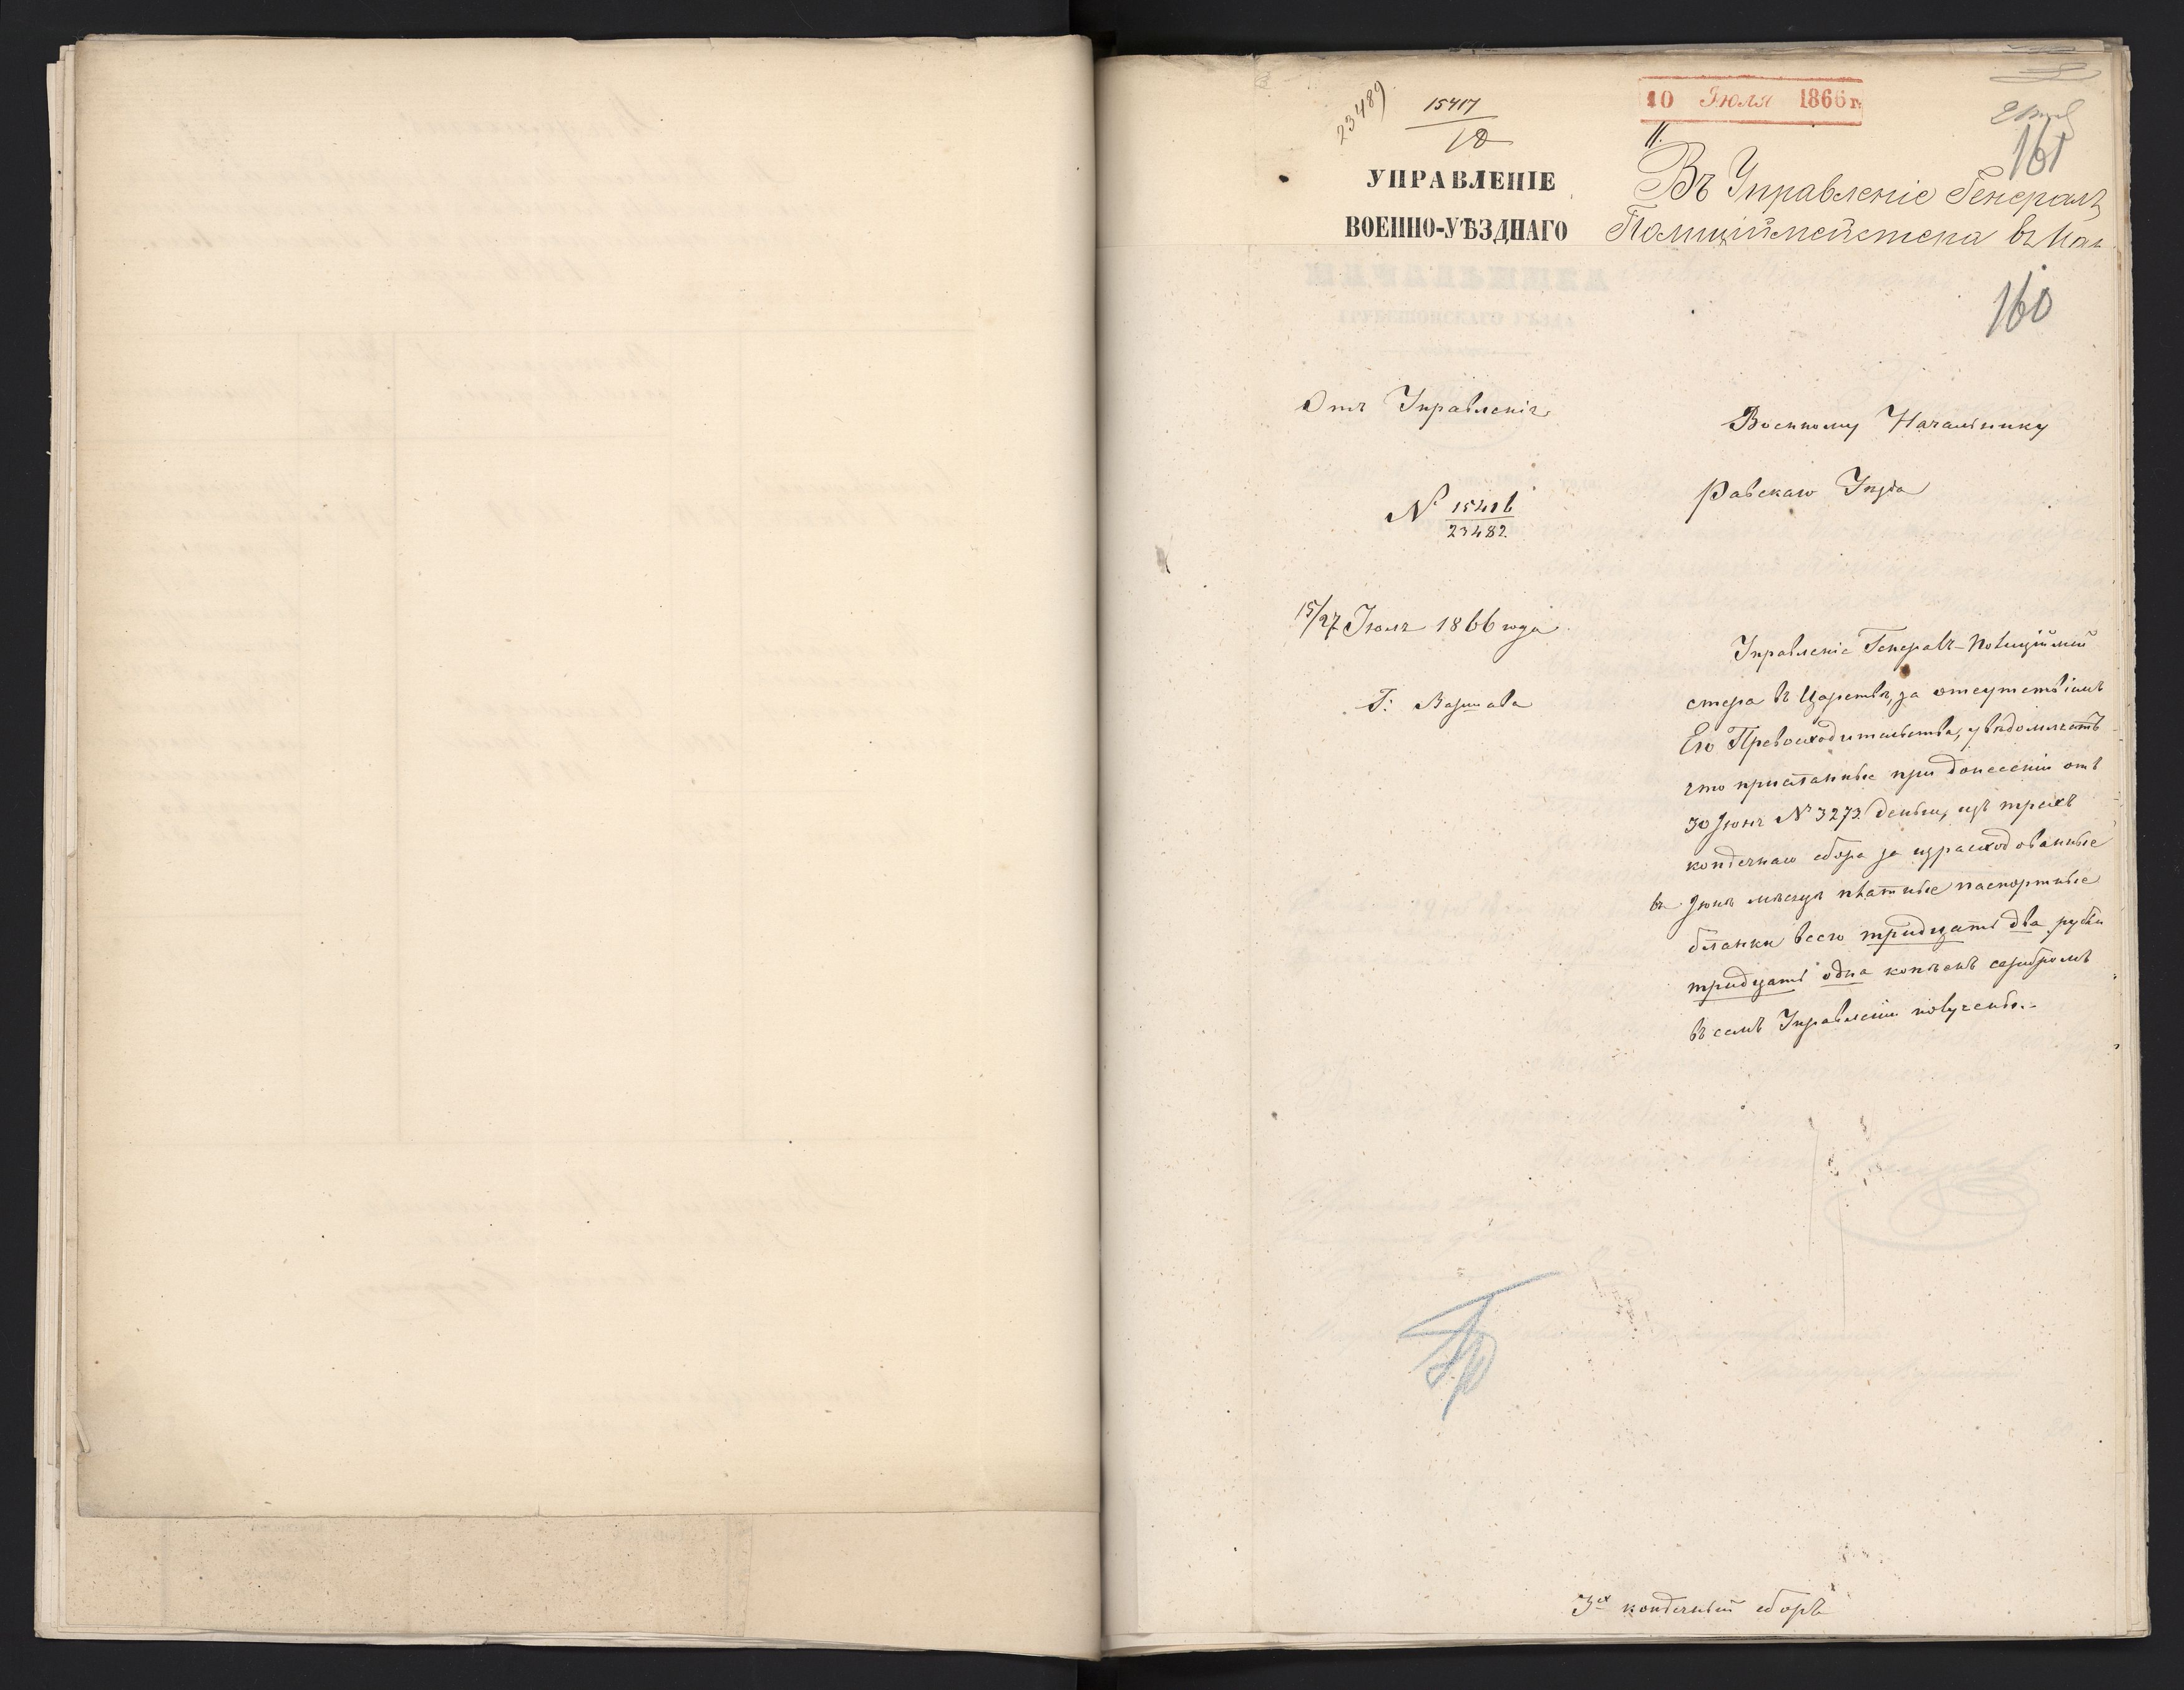 23489
15417
18
10 Июля 1866 г.
11.
161
УПРАВЛЕНІЕ
ВОЕННО-УѢЗДНАГО
Въ Управленіе Генералъ
Полиціймейстера въ Цар
160
Отъ Управленія
Военному Начальнику
Равскаго Уѣзда
N 15416
23482.
15/27 Іюля 1866 года
Г: Варшава
Управленіе Генералъ-Полиціймей
стера въ Царствѣ, за отсутствіемъ
Его Превосходительства, увѣдомляетъ
что присланные при донесеніи отъ
30 Іюня N 3273. деньги, изъ трехъ
копѣечнаго сбора за израсходованные
въ Іюнѣ мѣсяцѣ платные паспортные
бланки всего тридцать два рубли
тридцать одна копѣекъ серебромъ
въ семъ Управленіи получены.-
3ех копѣечный сборъ